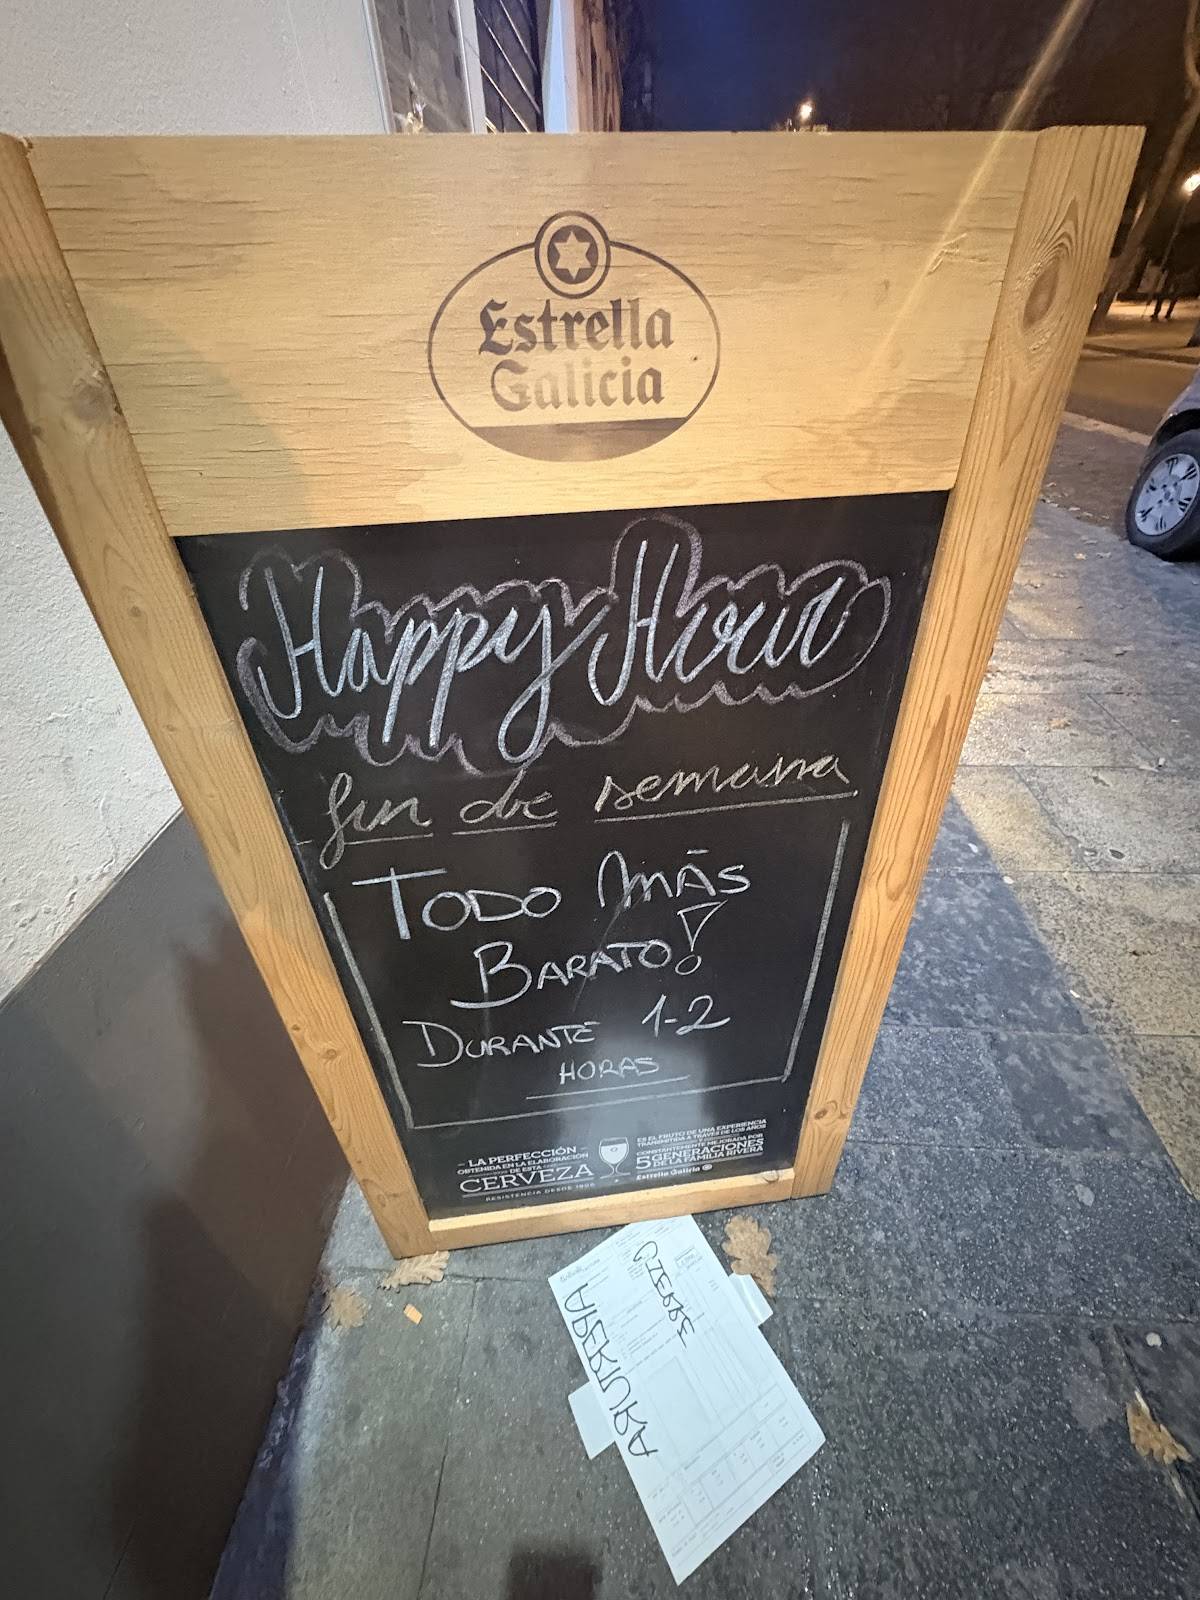 Estrella
Galicia
Happy Hour
fin de semana
TODO MÁS
BARATO!
DURANTE 1-2
HORAS
LA PERFECCIÓN
OBTENIDA EN LA ELABORACIÓN
DE ESTA
CERVEZA
RESISTENCIA DESDE 1906
ES EL FRUTO DE UNA EXPERIENCIA
TRANSMITIDA A TRAVÉS DE LOS AÑOS
CONSTANTEMENTE MEJORADA POR
5 GENERACIONES
DE LA FAMILIA RIVERA
Estrella Galicia
CIERRE
APERTURA